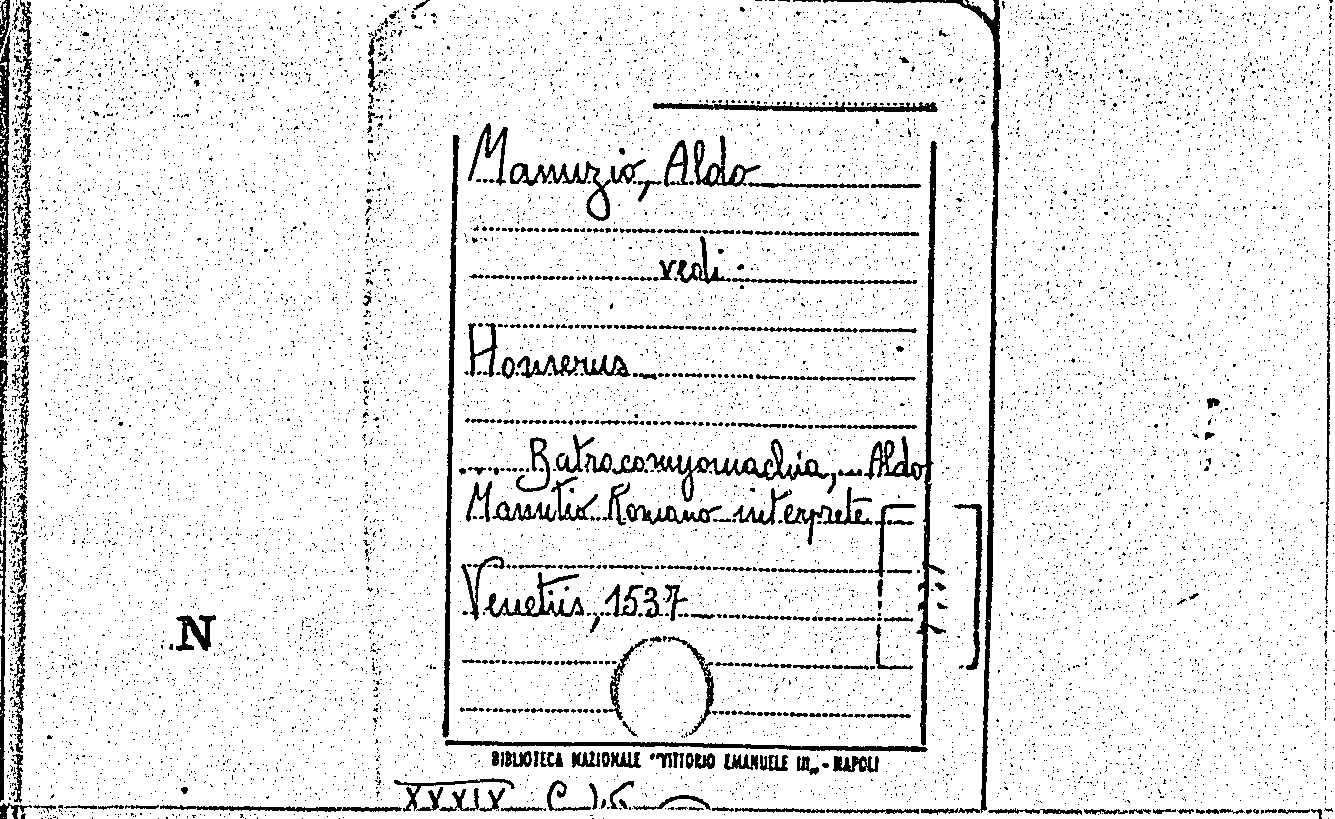 Manuzio, Aldo
vedi:
Homerus
Batracomyomachia, Aldo
Manutio Romano interprete
Venetiis, 1537
N
BIBLIOTECA NAZIONALE "VITTORIO EMANUELE III„ - NAPOLI
XXXIX